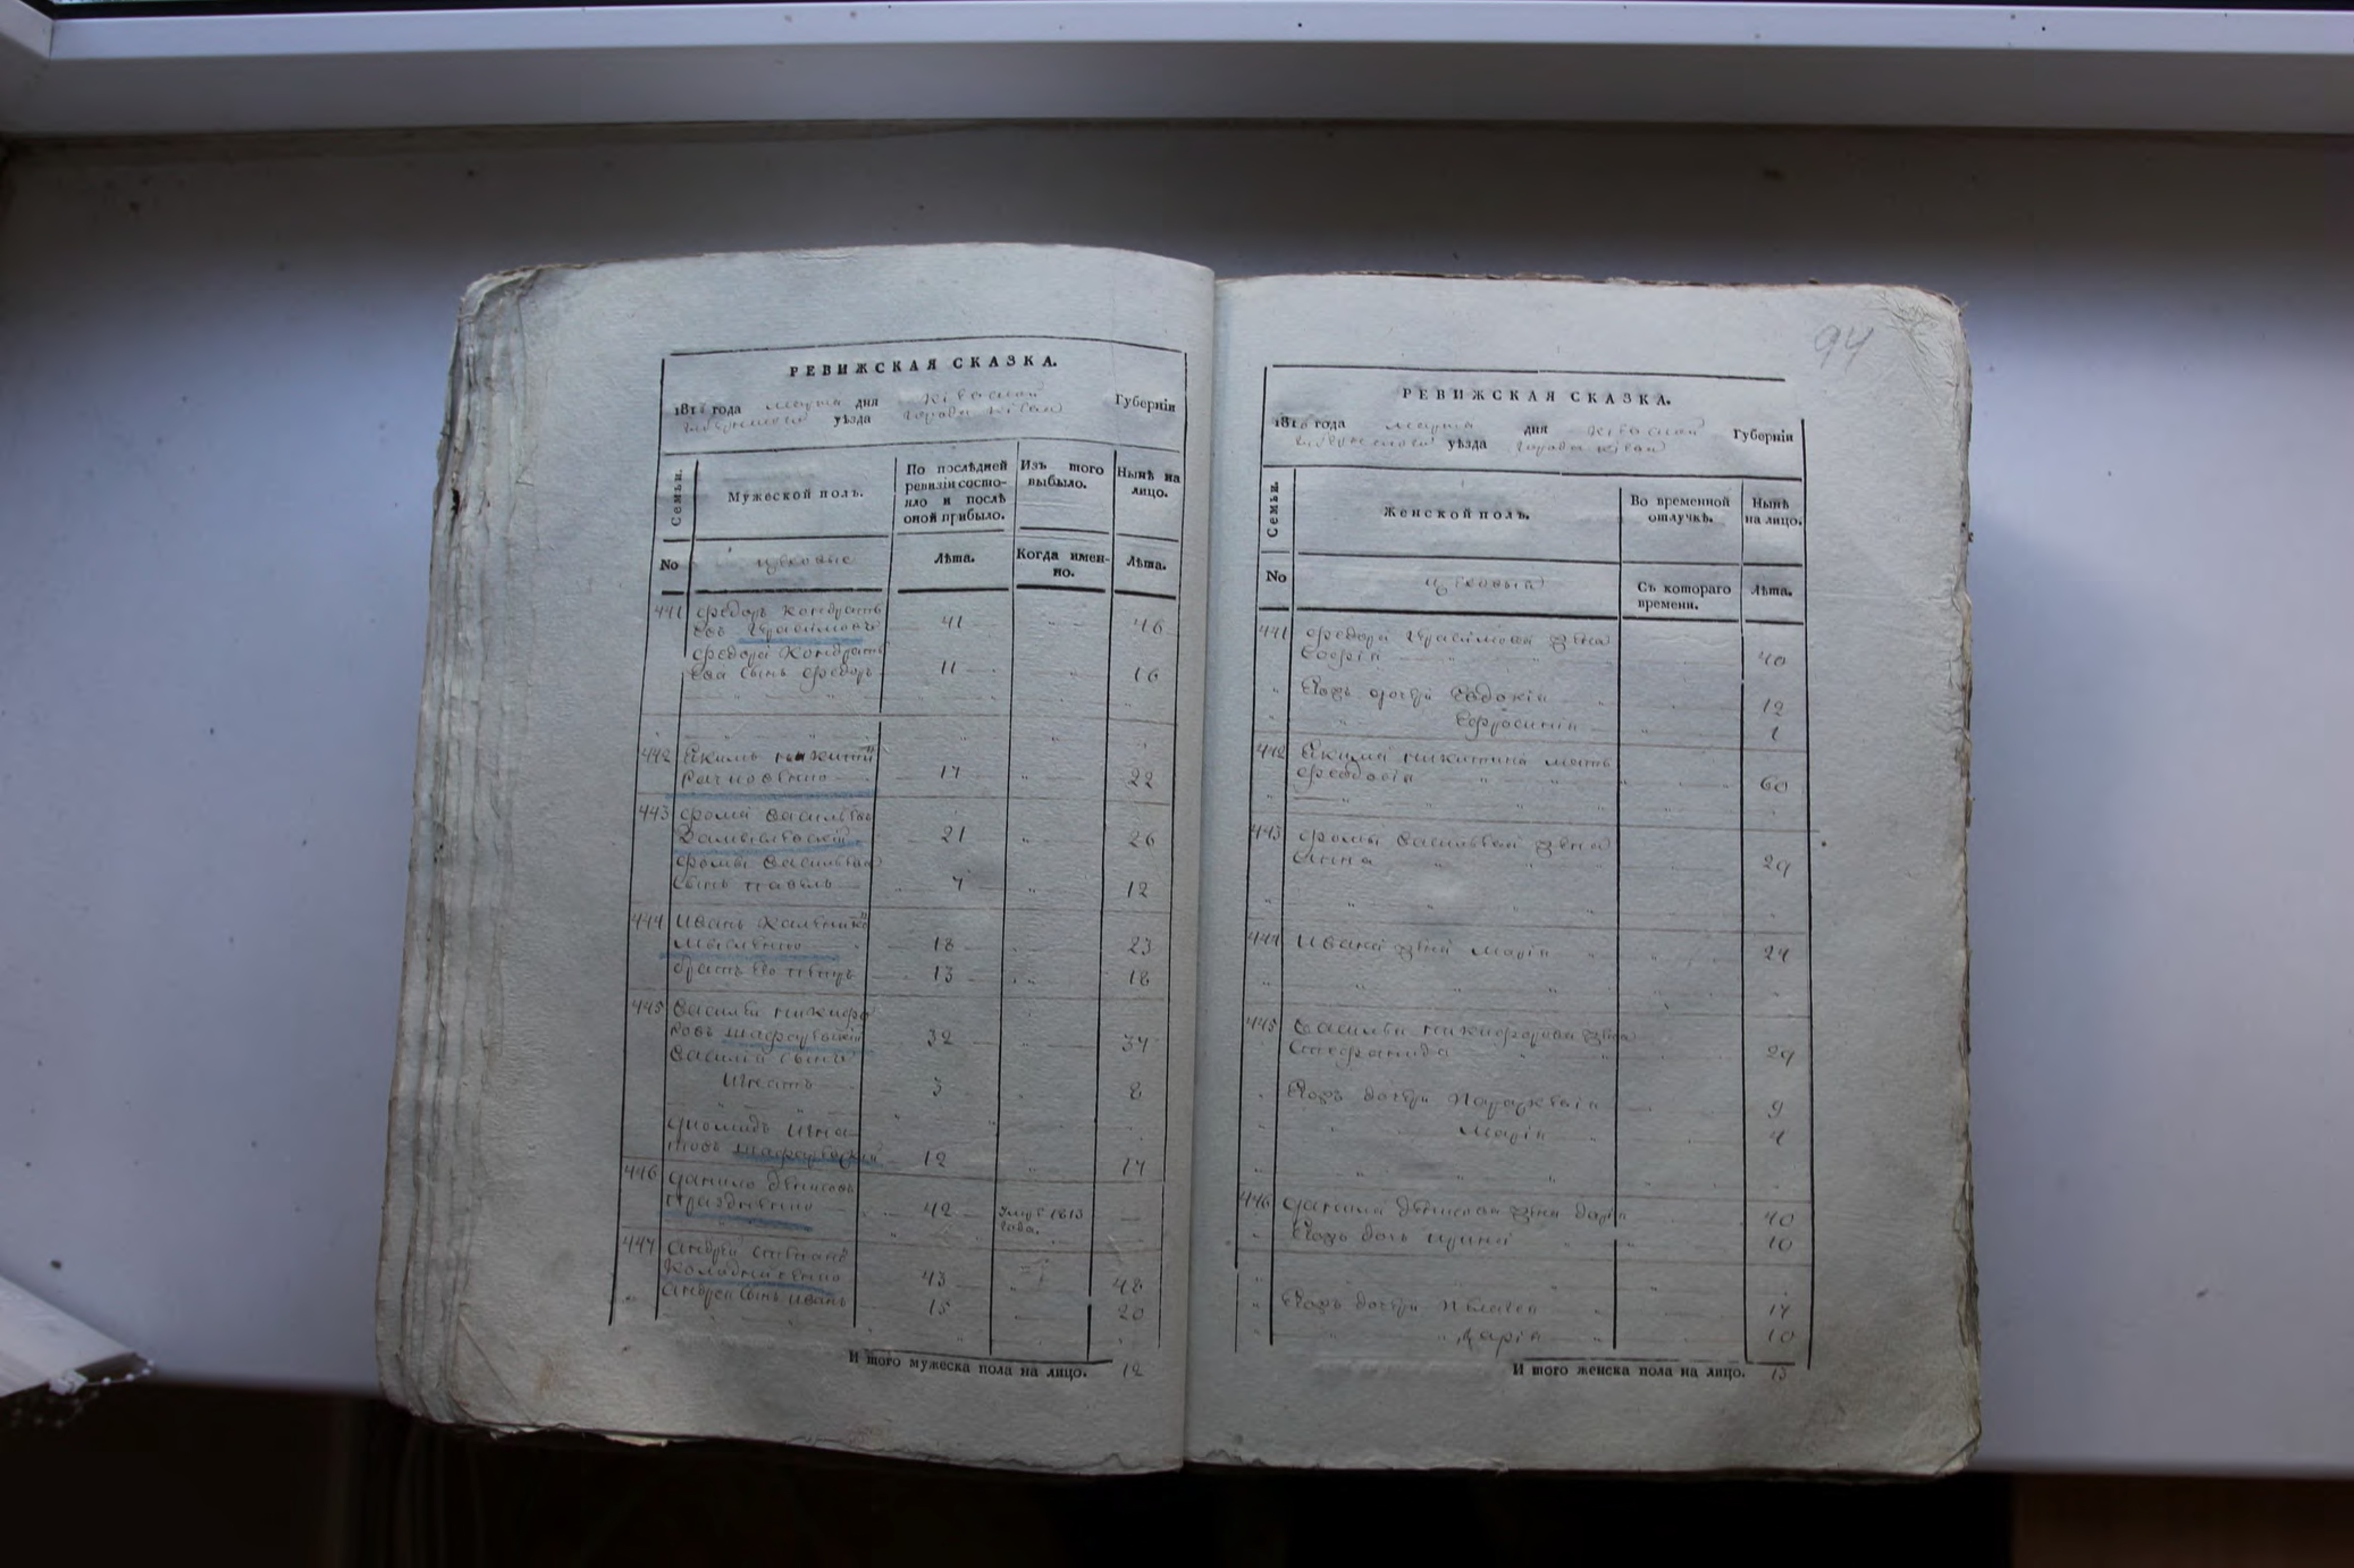 94
РЕВИЖСКАЯ СКАЗКА.
1816 года марта дня Кіевской Губерніи
уѣзда города Кіева
Семьи.
Мужеской полъ.
По послѣдней ревизіи состояло и послѣ оной прибыло.
Изъ того выбыло.
Нынѣ на лицо.
No
цеховые
Лѣта.
Когда именно.
Лѣта.
441 Федоръ Кондрать
евъ Герасимовъ 41 46
Федора Кондрать
ева сынъ Федоръ 11 16
442 Якимъ Никитинъ
17 22
443 Фома Васильевъ
21 26
Фомы Васильева
сынъ Павелъ 7 12
444 Иванъ
18 23
братъ его Петръ 13 18
445 Василій Никифо
ровъ 32 37
Василія сынъ
Игнатъ 3 8
Діомидъ Игна
товъ 12 17
446 Данило Денисовъ
42 1813
года.
447 Андрей Степановъ
43 48
Андрея сынъ Иванъ 15 20
И того мужеска пола на лицо. 12
РЕВИЖСКАЯ СКАЗКА.
1816 года марта дня Кіевской Губерніи
уѣзда города Кіева
Семьи.
Женской полъ.
Во временной отлучкѣ.
Нынѣ на лицо.
No
цеховыхъ
Съ котораго времени.
Лѣта.
441 Федора Герасимова жена
Софія 40
Ихъ дочери Евдокія 12
Ефросинія 1
442 Якима Никитина мать
Феодосія 60
443 Фомы Васильева жена
Анна 29
444 Ивана жена Марія 24
445 Василія Никифорова жена
Стефанида 29
Ихъ дочери Параскевія 9
Марія 4
446 Данила Денисова жена Дарія 40
Ихъ дочь Ирина 10
Ихъ дочери Пелагея 17
Марія 10
И того женска пола на лицо. 13